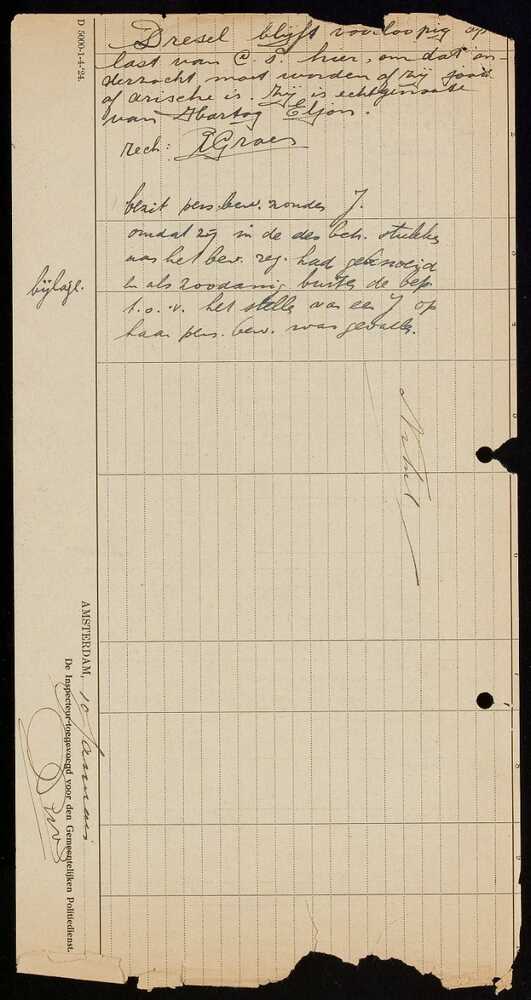 D 5000-1-4-'24.
Dresel blijft voorloopig op
last van C. P. hier, om dat on-
derzocht moet worden of zij jood
of arische is. Zij is echtgenoote
van Hartog Eljon.
rech:
bezit pers. bew. zonder J.
omdat zij in de des betr. stukken
aan het bev. reg. had geknoeid
en als zoodanig buiten de bep.
t.o.v. het stellen van een J op
haar pers. bew. was gevallen.
bijlage.
AMSTERDAM, 10 Januari
De Inspecteur toegevoegd voor den Gemeentelijken Politiedienst.